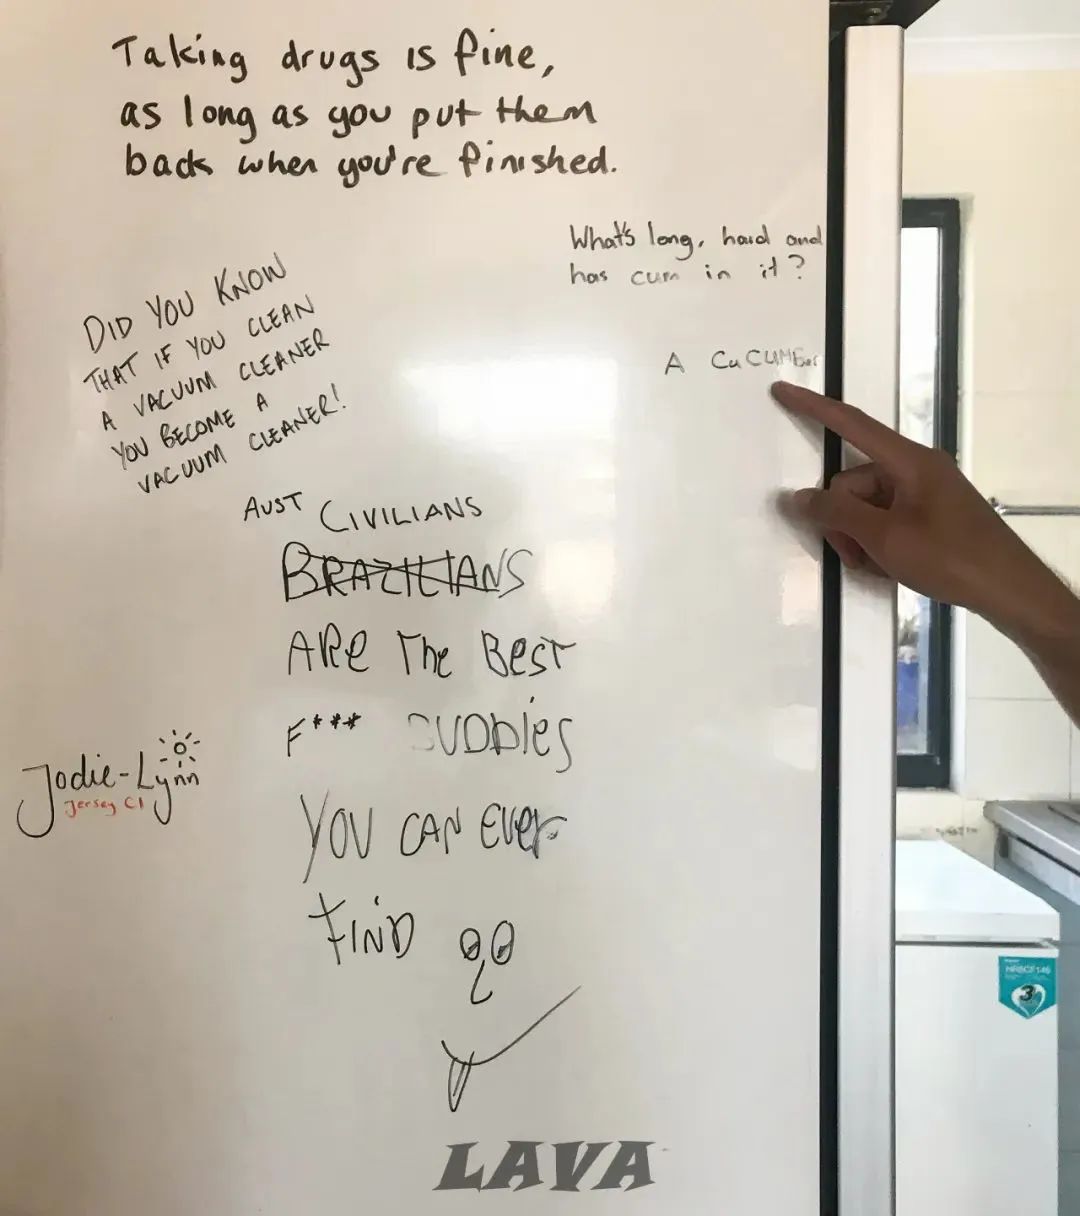 Taking drugs is fine,
as long as you put them
back when you're finished.
What's long, hard and
has cum in it?
A CuCUMBer
DID YOU KNOW
THAT IF YOU CLEAN
A VACUUM CLEANER
YOU BECOME A
VACUUM CLEANER!
AUST CIVILIANS
BRAZILIANS
ARE THE BEST
F*** BUDDIES
YOU CAN EVER
FIND
Jodie-Lynn
Jersey CI
LAVA
HRBCF146
3